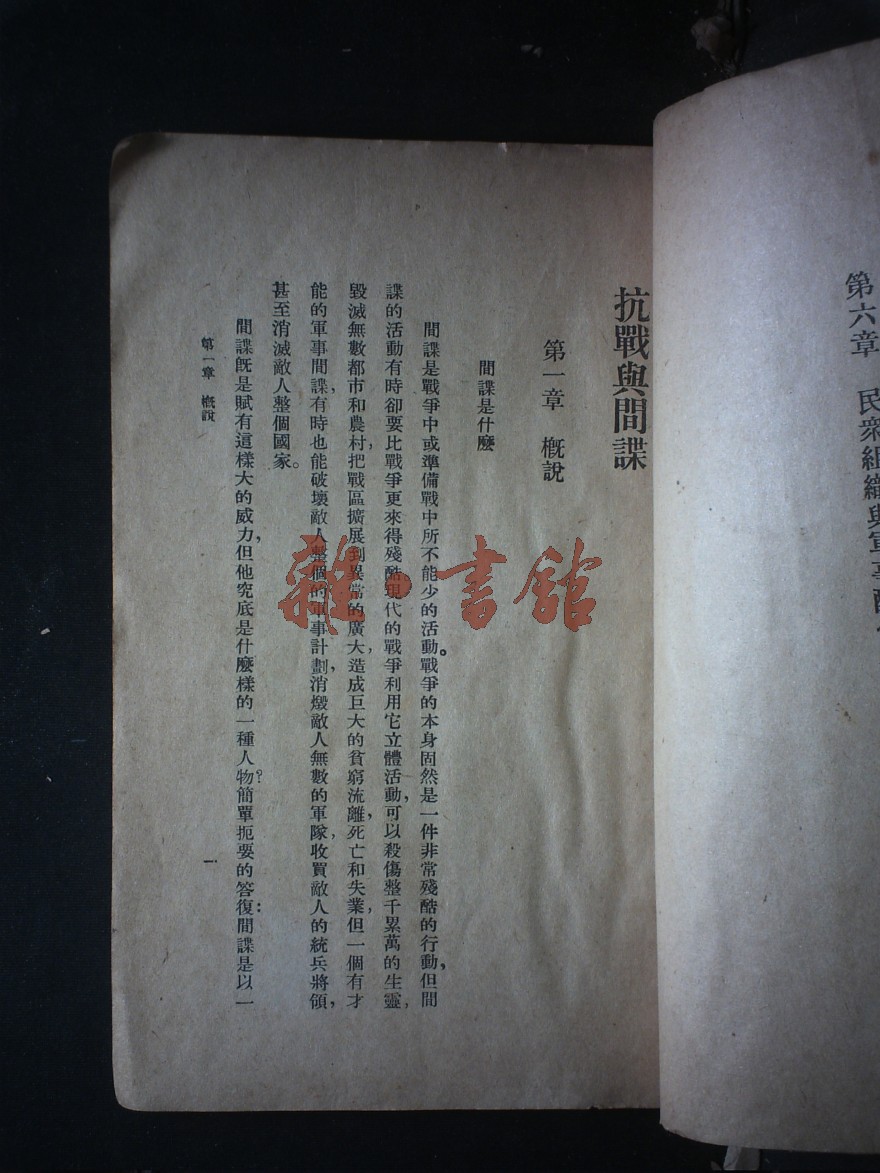 第六章　民衆組織與軍事
抗戰與間諜
第一章　槪說
間諜是什麼
間諜是戰爭中或準備戰中所不能少的活動。戰爭的本身固然是一件非常殘酷的行動，但間
諜的活動有時卻要比戰爭更來得殘酷現代的戰爭利用它立體活動，可以殺傷整千累萬的生靈，
毀滅無數都市和農村，把戰區擴展到異常的廣大，造成巨大的貧窮流離，死亡和失業，但一個有才
能的軍事間諜，有時也能破壞敵人整個的軍事計劃，消燬敵人無數的軍隊，收買敵人的統兵將領，
甚至消滅敵人整個國家。
間諜旣是賦有這樣大的威力，但他究底是什麼樣的一種人物？簡單扼要的答復：間諜是以一
第一章　槪說
一
雜·書館